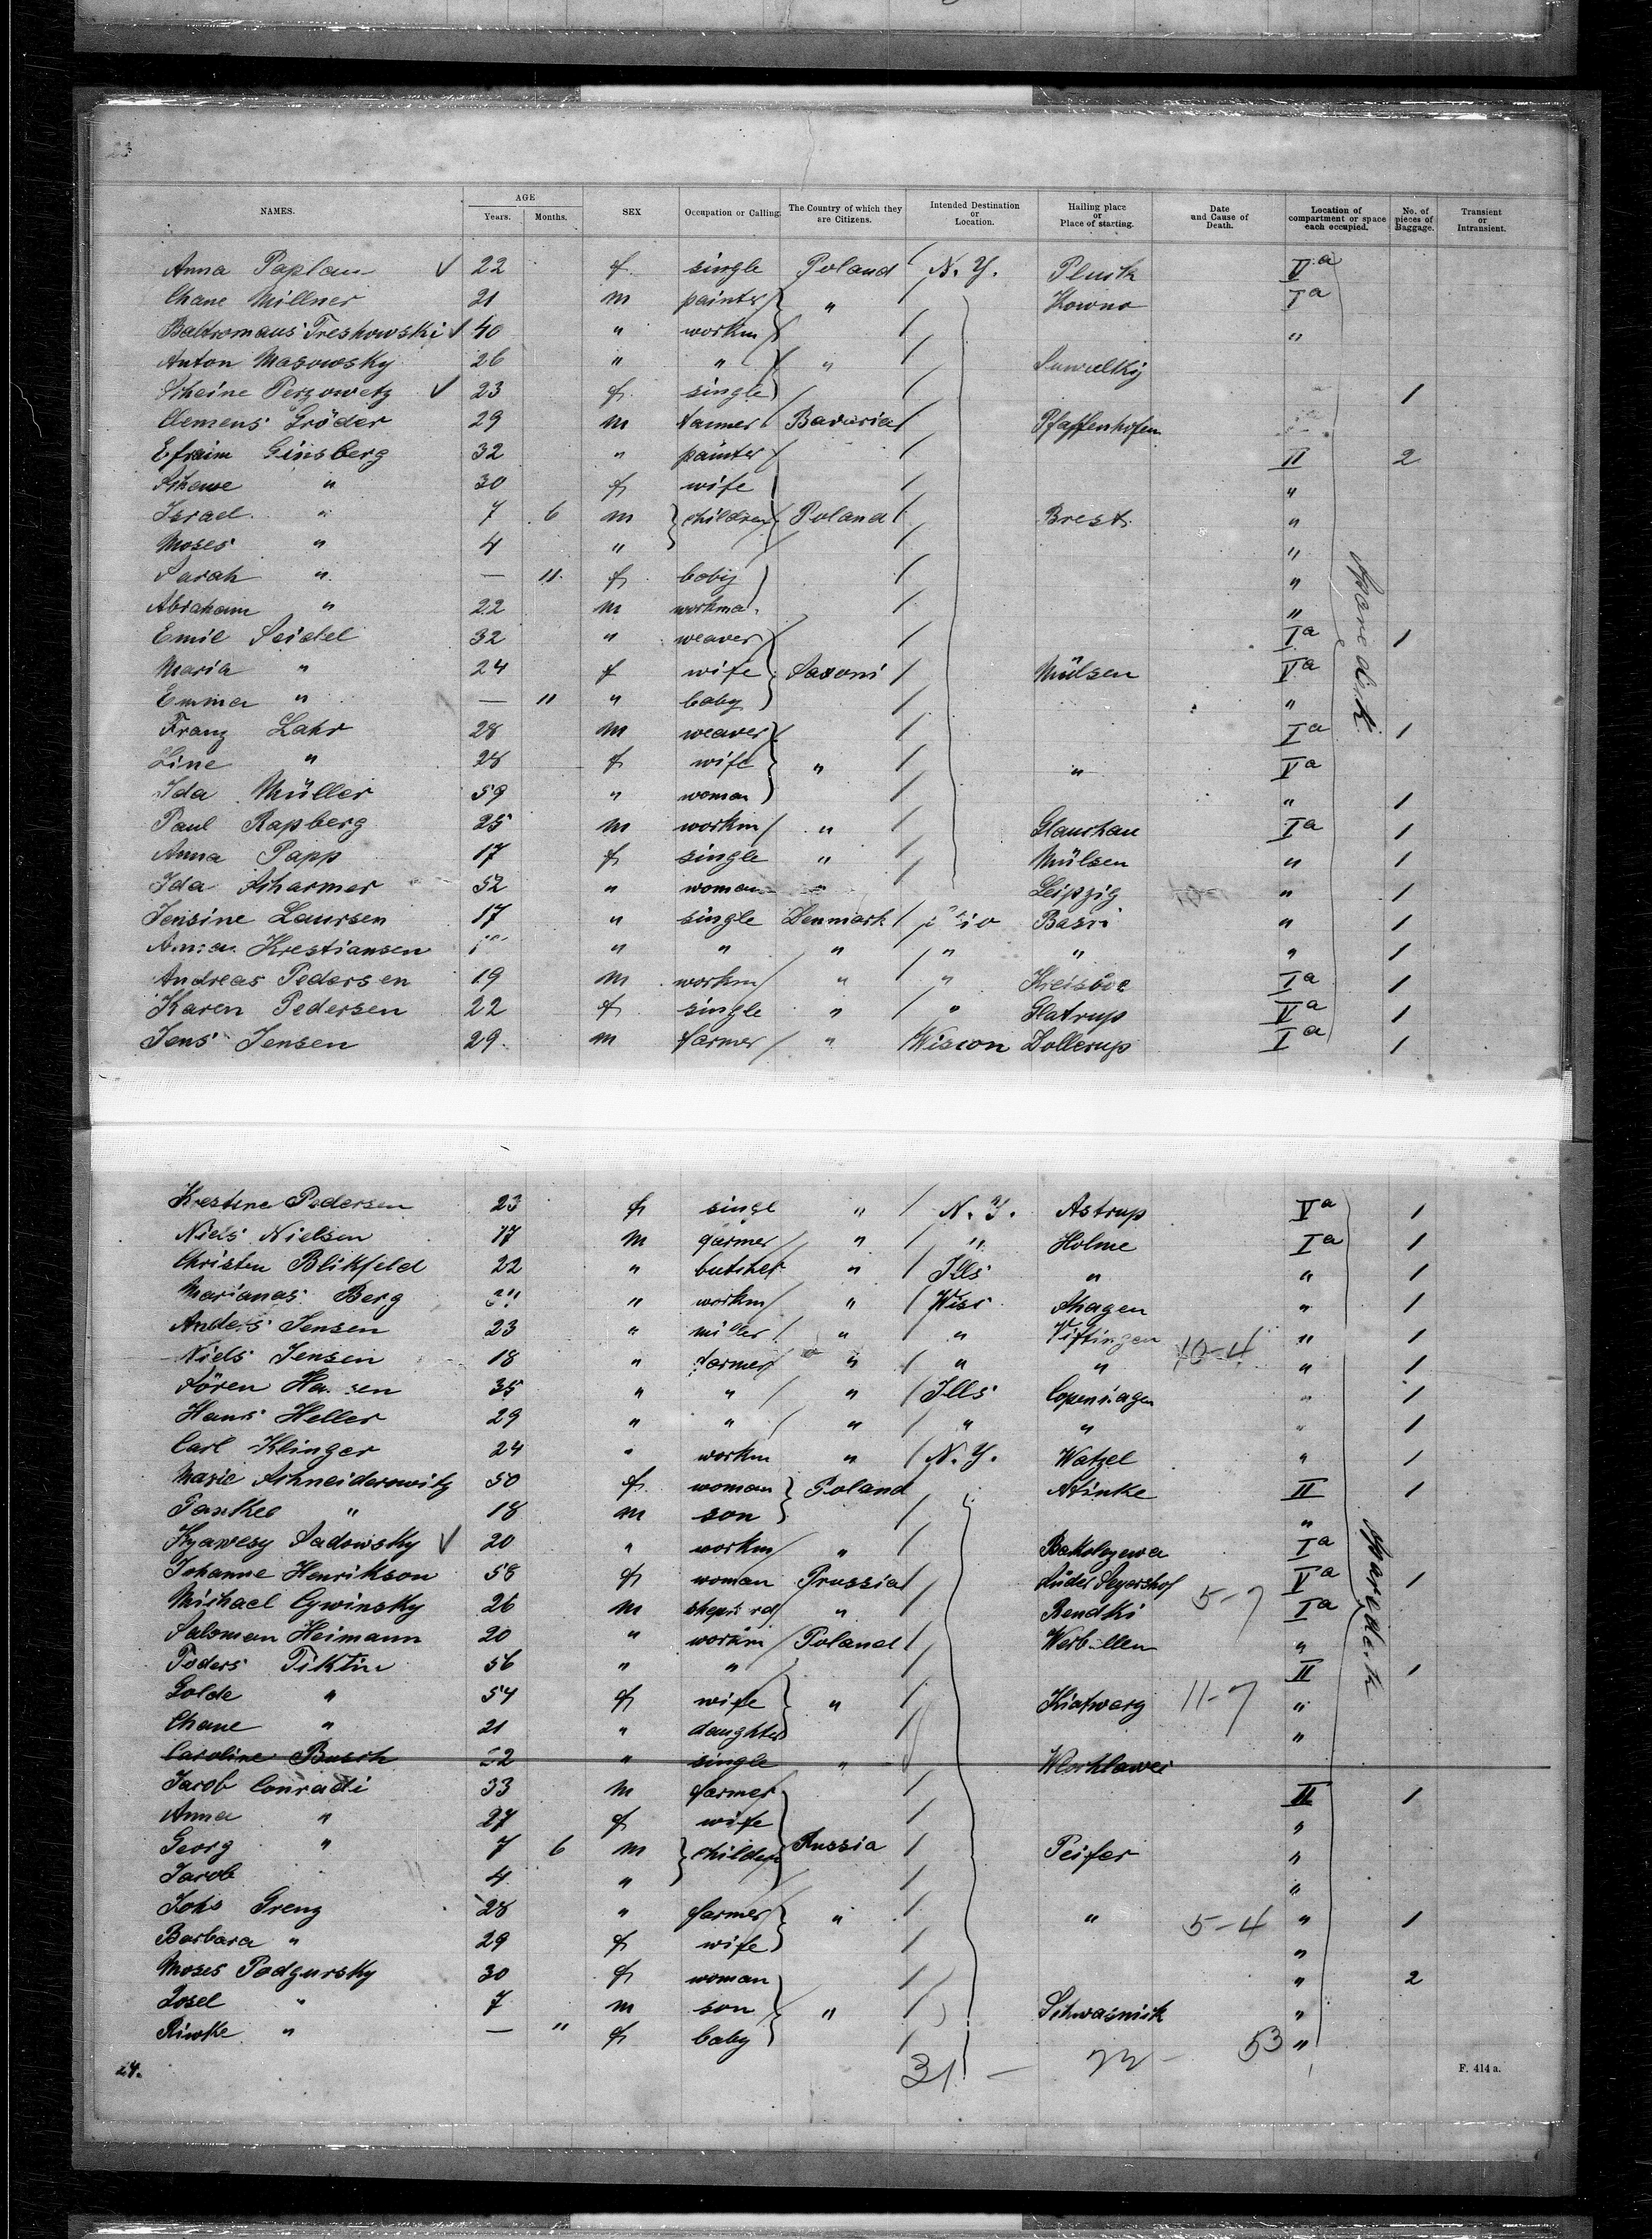 23
NAMES. AGE Years. Months. SEX Occupation or Calling. The Country of which they are Citizens. Intended Destination or Location. Hailing place or Place of starting. Date and Cause of Death. Location of compartment or space each occupied. No. of pieces of Baggage. Transient or Intransient.
Anna Paplau 22 f. single Poland N. Y. Plusk V a
Chane Millner 21 m painter " Kowno I a
Baltromaus Treshowski 40 " workm "
Anton Masowsky 26 " " " Suwalky
Scheine Perzowetz 23 f. single 1
Clemens Gröder 29 m farmer Bavaria Pfaffenhofen
Efraim Ginsberg 32 " painter II 2
" 30 f wife "
Israel " 7 6 m children Poland Brest "
Moses " 4 " "
Sarah " — 11 f baby "
Abraham " 22 m workma. "
Emil Seidel 32 " weaver I a 1
Maria " 24 f wife Saxoni Mülsen V a
Emma " — 11 " baby "
Franz Lahr 28 m weaver I a 1
Line " 28 f wife " " V a
Ida Müller 59 " woman " 1
Paul Rapberg 25 m workm " Glauchau I a 1
Anna Papp 17 f single " Mülsen " 1
Ida Scharmer 52 " woman " Leipzig " 1
Jensine Laursen 17 " single Denmark Basri " 1
Krestiansen " " " " " " 1
Andreas Pedersen 19 m workm " " I a 1
Karen Pedersen 22 f single " " Glatrup V a 1
Jens Jensen 29 m farmer " Wiscon Dollerup I a 1
Krestine Pedersen 23 f singl " N. Y. Astrup V a 1
Niels Nielsen 17 m garmer " " Holme I a 1
Christen Blikfeld 22 " butcher " Ills " " 1
Marianas Berg " workm " Wisc Skagen " 1
Anders Jensen 23 " miller " " Viftingen 10-4 " 1
Niels Jensen 18 " farmer " " " " 1
Sören Hansen 35 " " " Ills Copenhagen " 1
Hans Heller 29 " " " " " " 1
Carl Klinger 24 " workm " N. Y. Watzel " 1
Marie Schneiderowitz 50 f. woman Poland Stinke II 1
" 18 m son "
Sadowsky 20 " workm " Bakolozewa I a
Johanne Henrikson 58 f woman Prussia Süder Seyershof V a 1
Michael Cywinsky 26 m " Rendki 5-7 I a
Salomon Heimann 20 " workm Poland Werballen "
Toders Tiktin 56 " " II 1
Golde " 54 f wife " Kiatwarg 11-7 "
Chane " 21 " daughter "
Caroline Busch 22 " single "
Jacob Conradi 33 m farmer II 1
Anna " 27 f wife "
Georg " 7 6 m childern Russia Peifer "
Jacob " 4 " "
Johs Grenz 28 " farmer " " 5-4 " 1
Barbara " 29 f wife "
Moses Podgursky 30 f woman " 2
Josel " 7 m son " "
Riwke " — " f baby "
24. 31 — 53 F. 414 a.